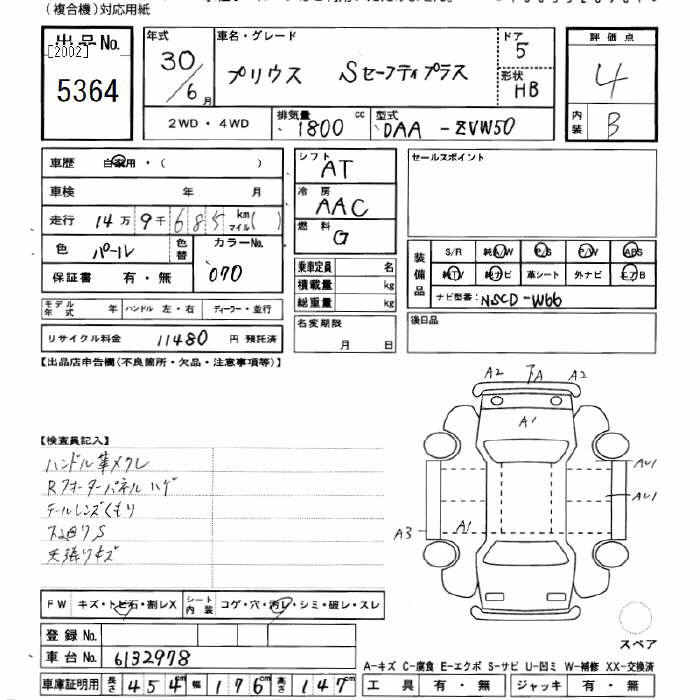 (複合機)対応用紙
出品No. [2002] 5364
年式 30/6月
車名・グレード プリウス Sセーフティプラス
ドア 5
形状 HB
2WD・4WD
排気量 1800 cc
型式 DAA-ZVW50
評価点 4
内装 B
車歴 自家用・( )
車検 年 月
走行 14万9千685 km マイル( )
色 パール 色替 カラーNo. 070
保証書 有・無
モデル年式 年 ハンドル 左・右 ディーラー・並行
リサイクル料金 11480 円 預託済
シフト AT
冷房 AAC
燃料 G
乗車定員 名
積載量 kg
総重量 kg
名変期限 月 日
セールスポイント
装備品 S/R 純A/W P/S P/W ABS
純TV 純ナビ 革シート 外ナビ エアB
ナビ型番: NSCD-W66
後日品
【出品店申告欄(不良箇所・欠品・注意事項等)】
【検査員記入】
ハンドル革メクレ
Rクォーターパネル ハゲ
テールレンズくもり
下回りS
天張りキズ
A2 下A A2
A1
AU1
AU1
A3 A1
スペア
FW キズ・トビ石・割レX シート内装 コゲ・穴・汚レ・シミ・破レ・スレ
登録No.
車台No. 6132978
車庫証明用 長さ 454cm 幅 176cm 高さ 147cm
A-キズ C-腐食 E-エクボ S-サビ U-凹ミ W-補修 XX-交換済
工具 有・無 ジャッキ 有・無